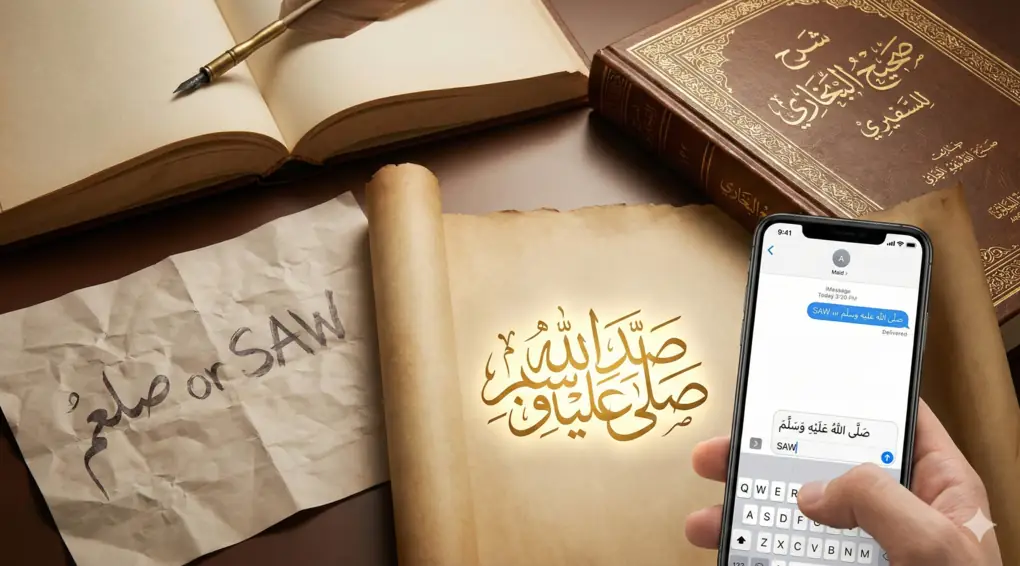 شرح
صحيح البخاري
للسفيري
البخاري
صلعم or SAW
الله
صلى عليه وسلم
9:41
A
Maid >
iMessage
Today 3:20 PM
صلَّى الله عليه وسلَّم or SAW
Delivered
صَلَّى اللهُ عَلَيْهِ وَسَلَّمَ
SAW
Q W E R
A S D F
Z X C V B N M
123